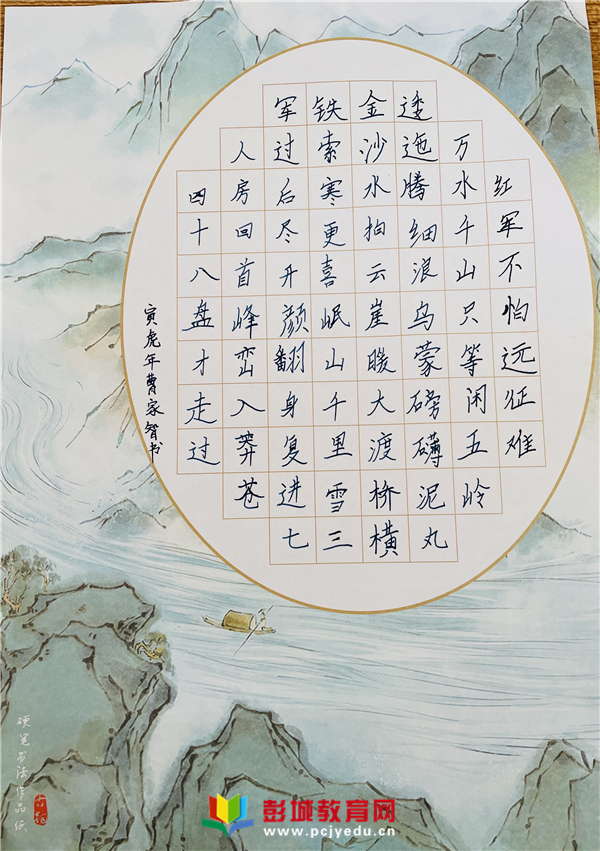 红军不怕远征难
万水千山只等闲五岭
逶迤腾细浪乌蒙磅礴泥丸
金沙水拍云崖暖大渡桥横
铁索寒更喜岷山千里雪三
军过后尽开颜翻身复进七
人房回首峰峦入莽苍
四十八盘才走过
寅虎年曹家智书
硬笔书法作品纸
彭城教育网
www.pcjyedu.cn